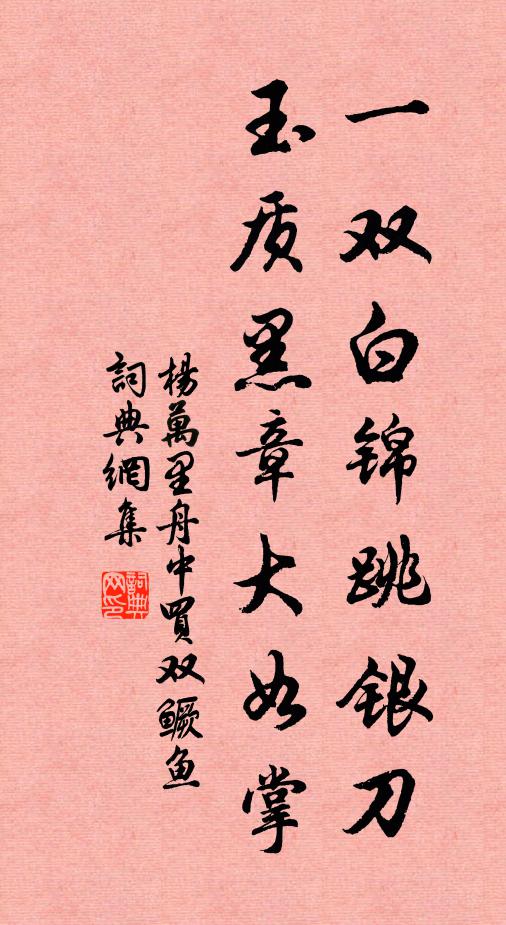 一双白锦跳银刀
玉质黑章大如掌
楊萬里舟中買双鳜鱼
詞典網集
詞典网印